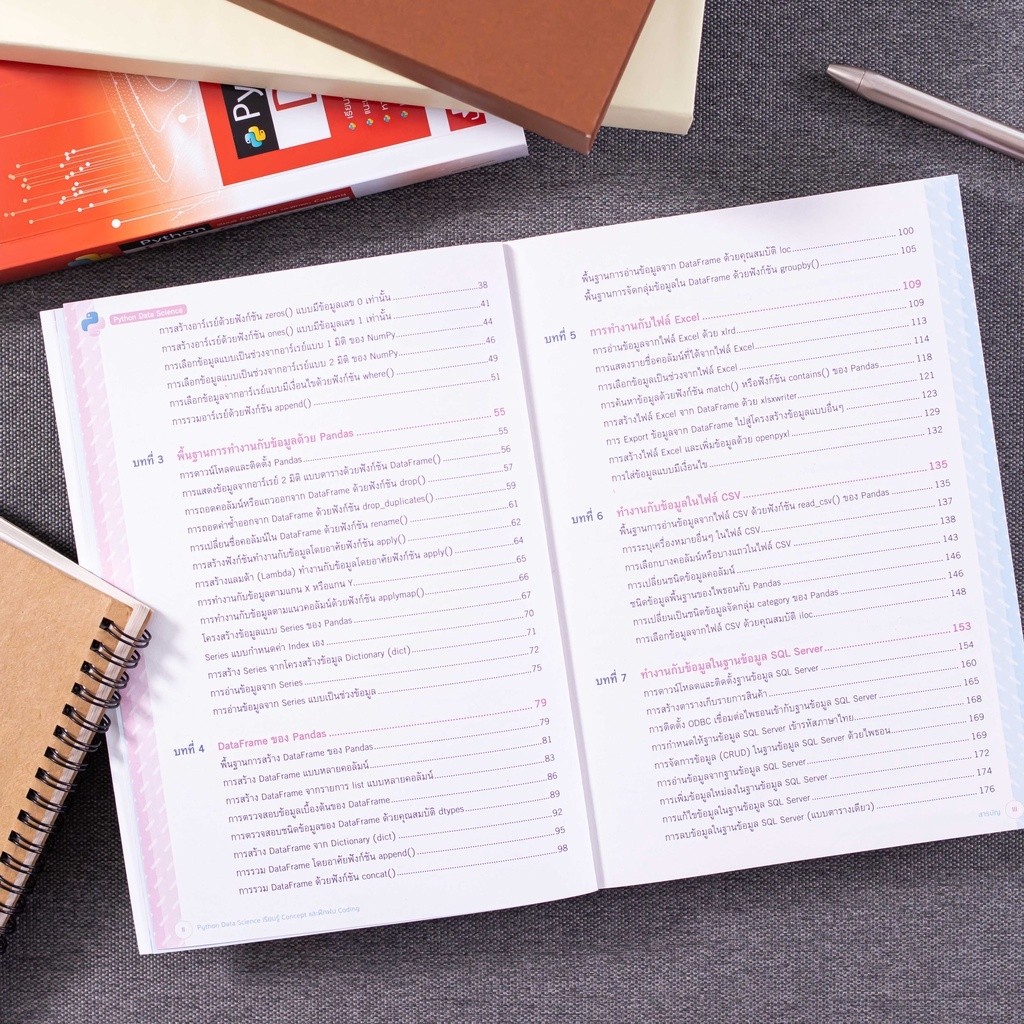 Python
Python Data Science
การสร้างอาร์เรย์ด้วยฟังก์ชัน zeros() แบบมีข้อมูลเลข 0 เท่านั้น 38
การสร้างอาร์เรย์ด้วยฟังก์ชัน ones() แบบมีข้อมูลเลข 1 เท่านั้น 41
การเลือกข้อมูลแบบเป็นช่วงจากอาร์เรย์แบบ 1 มิติ ของ NumPy 44
การเลือกข้อมูลแบบเป็นช่วงจากอาร์เรย์แบบ 2 มิติ ของ NumPy 46
การเลือกข้อมูลจากอาร์เรย์แบบมีเงื่อนไขด้วยฟังก์ชัน where() 49
การรวมอาร์เรย์ด้วยฟังก์ชัน append() 51
บทที่ 3 พื้นฐานการทำงานกับข้อมูลด้วย Pandas 55
การดาวน์โหลดและติดตั้ง Pandas 55
การแสดงข้อมูลจากอาร์เรย์ 2 มิติ แบบตารางด้วยฟังก์ชัน DataFrame() 56
การถอดคอลัมน์หรือแถวออกจาก DataFrame ด้วยฟังก์ชัน drop() 57
การถอดค่าซ้ำออกจาก DataFrame ด้วยฟังก์ชัน drop_duplicates() 59
การเปลี่ยนชื่อคอลัมน์ใน DataFrame ด้วยฟังก์ชัน rename() 61
การสร้างฟังก์ชันทำงานกับข้อมูลโดยอาศัยฟังก์ชัน apply() 62
การสร้างแลมด้า (Lambda) ทำงานกับข้อมูลโดยอาศัยฟังก์ชัน apply() 64
การทำงานกับข้อมูลตามแกน X หรือแกน Y 65
การทำงานกับข้อมูลตามแนวคอลัมน์ด้วยฟังก์ชัน applymap() 66
โครงสร้างข้อมูลแบบ Series ของ Pandas 67
Series แบบกำหนดค่า Index เอง 70
การสร้าง Series จากโครงสร้างข้อมูล Dictionary (dict) 71
การอ่านข้อมูลจาก Series 72
การอ่านข้อมูลจาก Series แบบเป็นช่วงข้อมูล 75
บทที่ 4 DataFrame ของ Pandas 79
พื้นฐานการสร้าง DataFrame ของ Pandas 79
การสร้าง DataFrame แบบหลายคอลัมน์ 81
การสร้าง DataFrame จากรายการ list แบบหลายคอลัมน์ 83
การตรวจสอบข้อมูลเบื้องต้นของ DataFrame 86
การตรวจสอบชนิดข้อมูลของ DataFrame ด้วยคุณสมบัติ dtypes 89
การสร้าง DataFrame จาก Dictionary (dict) 92
การรวม DataFrame โดยอาศัยฟังก์ชัน append() 95
การรวม DataFrame ด้วยฟังก์ชัน concat() 98
Python Data Science เรียนรู้ Concept และฝึกฝน Coding
พื้นฐานการอ่านข้อมูลจาก DataFrame ด้วยคุณสมบัติ loc 100
พื้นฐานการจัดกลุ่มข้อมูลใน DataFrame ด้วยฟังก์ชัน groupby() 105
บทที่ 5 การทำงานกับไฟล์ Excel 109
การอ่านข้อมูลจากไฟล์ Excel ด้วย xlrd 109
การแสดงรายชื่อคอลัมน์ที่ได้จากไฟล์ Excel 113
การเลือกข้อมูลเป็นช่วงจากไฟล์ Excel 114
การค้นหาข้อมูลด้วยฟังก์ชัน match() หรือฟังก์ชัน contains() ของ Pandas 118
การสร้างไฟล์ Excel จาก DataFrame ด้วย xlsxwriter 121
การ Export ข้อมูลจาก DataFrame ไปสู่โครงสร้างข้อมูลแบบอื่นๆ 123
การสร้างไฟล์ Excel และเพิ่มข้อมูลด้วย openpyxl 129
การใส่ข้อมูลแบบมีเงื่อนไข 132
บทที่ 6 ทำงานกับข้อมูลในไฟล์ CSV 135
พื้นฐานการอ่านข้อมูลจากไฟล์ CSV ด้วยฟังก์ชัน read_csv() ของ Pandas 135
การระบุเครื่องหมายอื่นๆ ในไฟล์ CSV 137
การเลือกบางคอลัมน์หรือบางแถวในไฟล์ CSV 138
การเปลี่ยนชนิดข้อมูลคอลัมน์ 143
ชนิดข้อมูลพื้นฐานของไพธอนกับ Pandas 146
การเปลี่ยนเป็นชนิดข้อมูลจัดกลุ่ม category ของ Pandas 146
การเลือกข้อมูลจากไฟล์ CSV ด้วยคุณสมบัติ iloc 148
บทที่ 7 ทำงานกับข้อมูลในฐานข้อมูล SQL Server 153
การดาวน์โหลดและติดตั้งฐานข้อมูล SQL Server 154
การสร้างตารางเก็บรายการสินค้า 160
การติดตั้ง ODBC เชื่อมต่อไพธอนเข้ากับฐานข้อมูล SQL Server 165
การกำหนดให้ฐานข้อมูล SQL Server เข้ารหัสภาษาไทย 168
การจัดการข้อมูล (CRUD) ในฐานข้อมูล SQL Server ด้วยไพธอน 169
การอ่านข้อมูลจากฐานข้อมูล SQL Server 169
การเพิ่มข้อมูลใหม่ลงในฐานข้อมูล SQL Server 172
การแก้ไขข้อมูลในฐานข้อมูล SQL Server 174
การลบข้อมูลในฐานข้อมูล SQL Server (แบบตารางเดียว) 176
สารบัญ